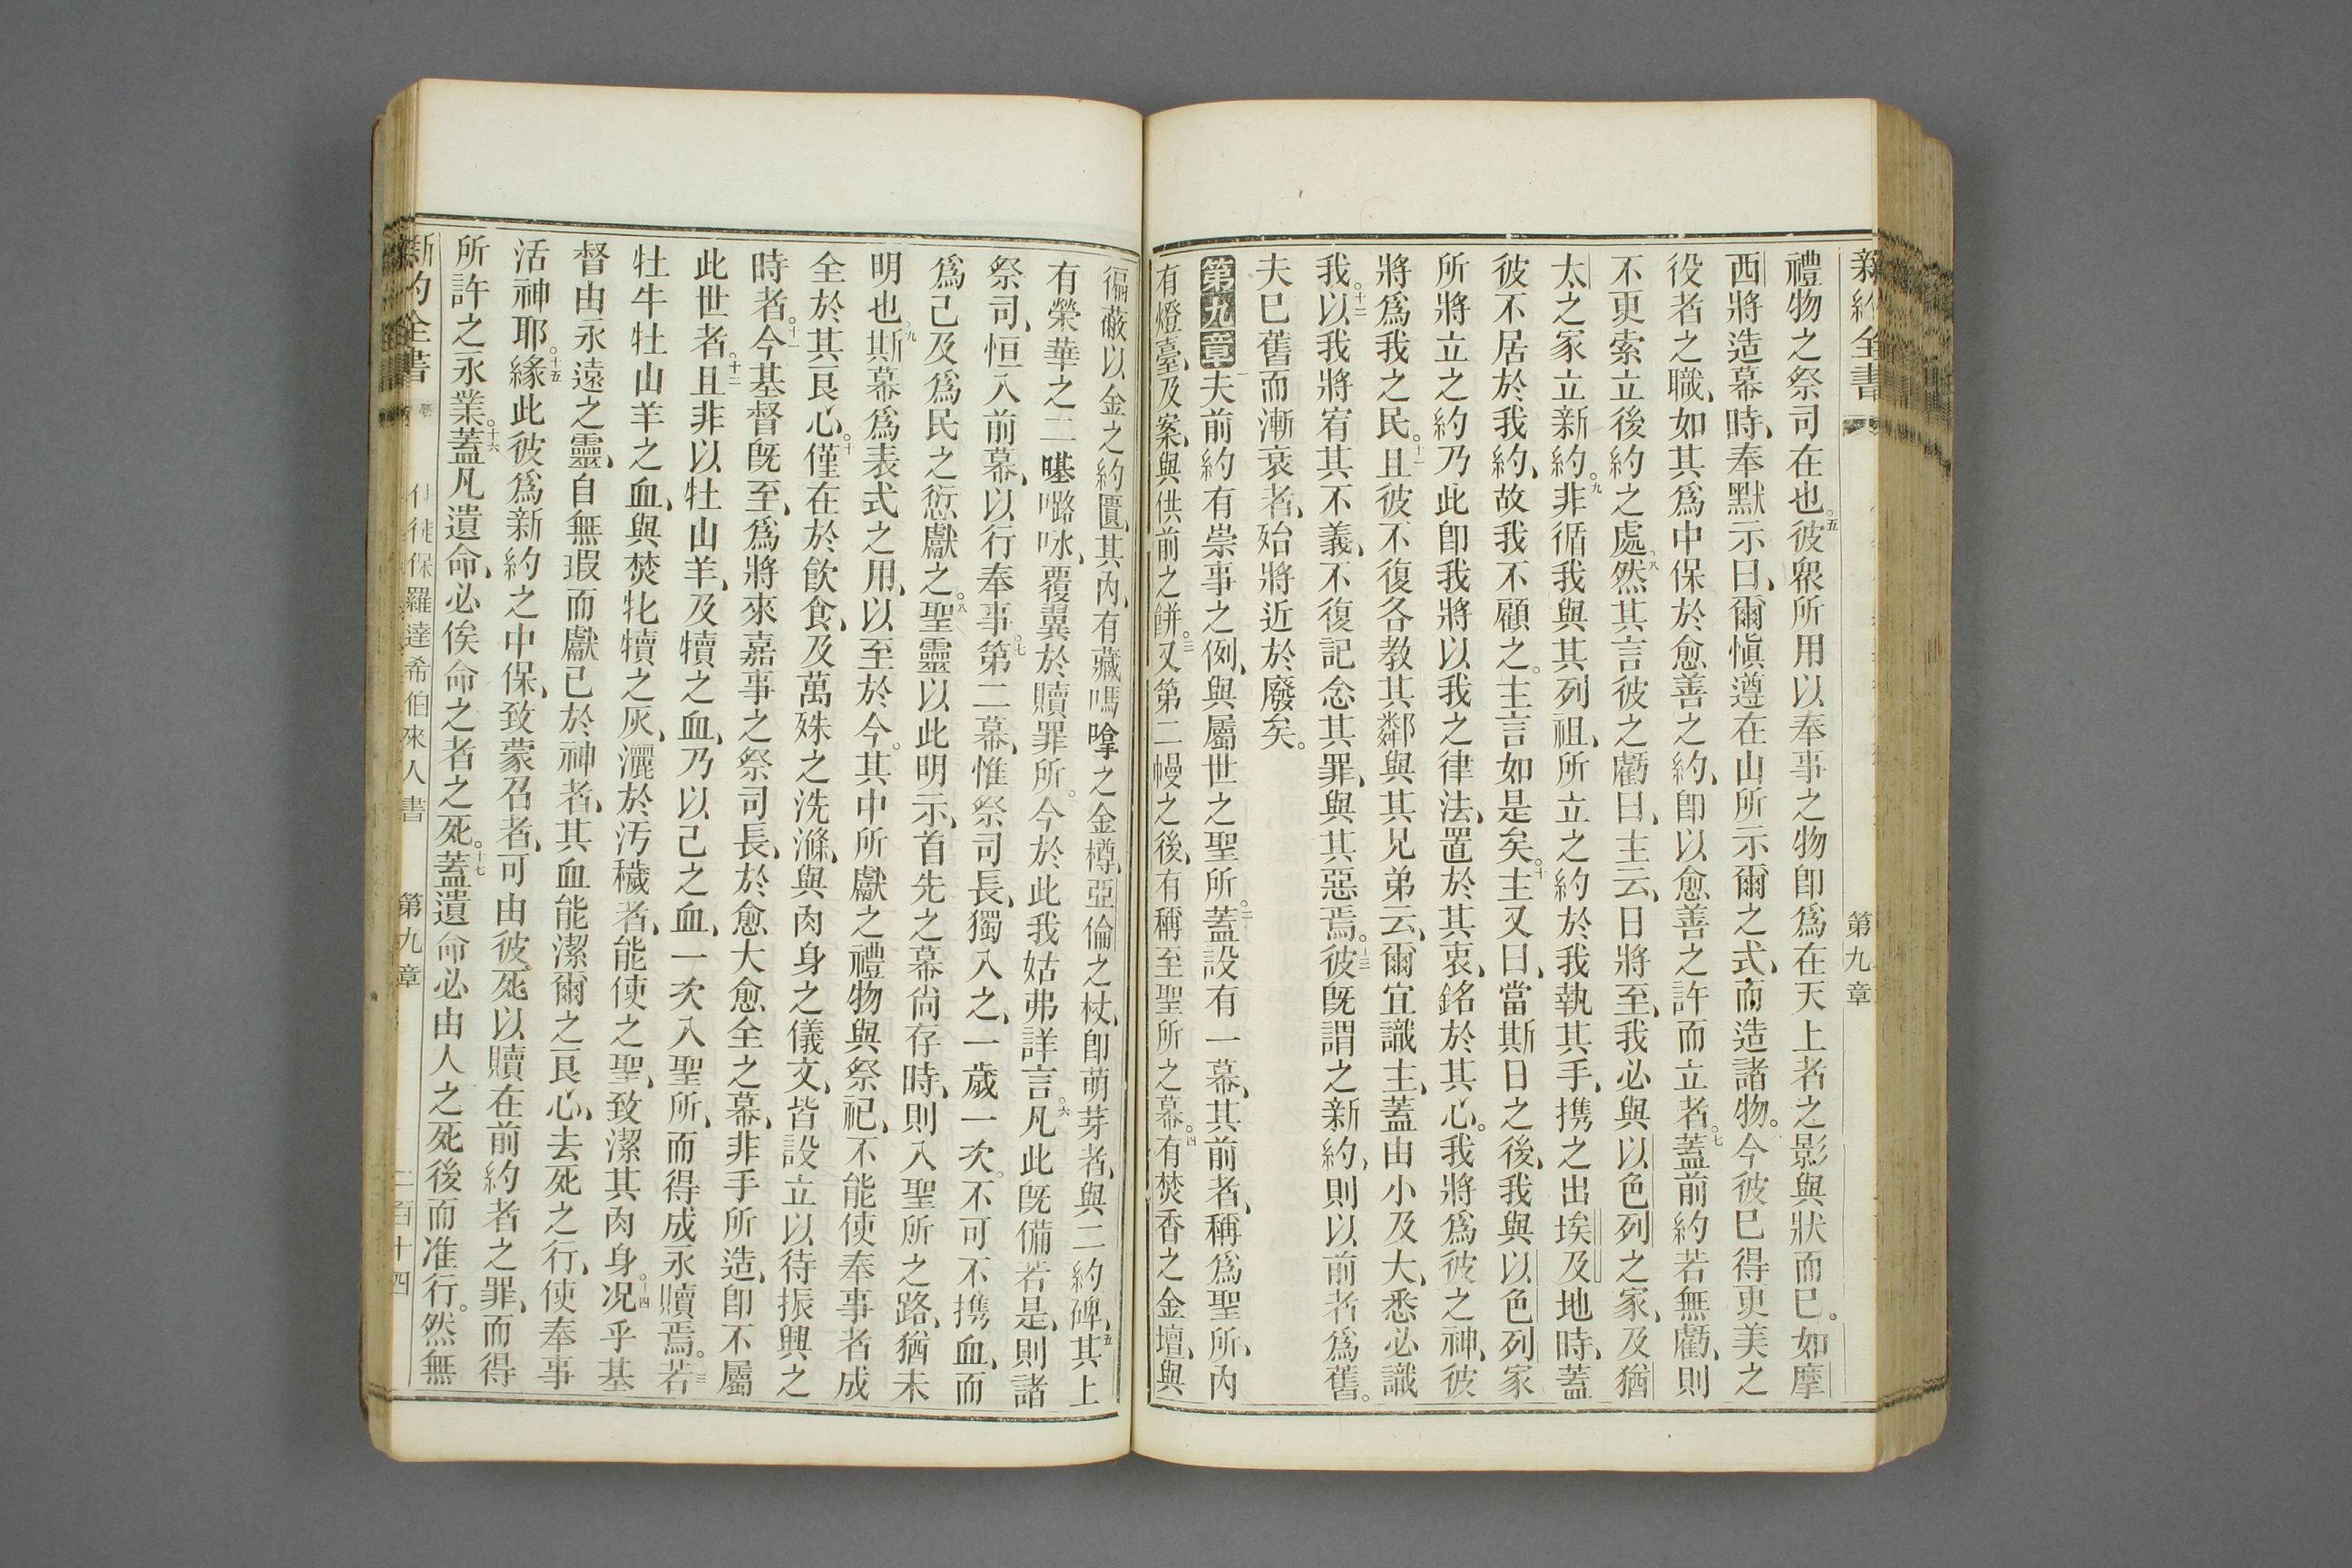 新約全書 第九章
禮物之祭司在也。五彼衆所用以奉事之物卽爲在天上者之影與狀而已。如摩
西將造幕時、奉默示曰、爾愼遵在山所示爾之式、而造諸物。今彼已得更美之
役者之職、如其爲中保於愈善之約、卽以愈善之許而立者。七蓋前約若無虧、則
不更索立後約之處、八然其言彼之虧曰、主云、日將至、我必與以色列之家、及猶
太之家立新約。九非循我與其列祖、所立之約於我執其手、携之出埃及地時、蓋
彼不居於我約、故我不顧之。主言如是矣。十主又曰、當斯日之後、我與以色列家
所將立之約乃此卽我將以我之律法、置於其衷、銘於其心。我將爲彼之神、彼
將爲我之民。十一且彼不復各教其鄰與其兄弟云、爾宜識主、蓋由小及大、悉必識
我。十二以我將宥其不義、不復記念其罪、與其惡焉。十三彼旣謂之新約、則以前者爲舊。
夫已舊而漸衰者、殆將近於廢矣。
第九章一夫前約有崇事之例、與屬世之聖所。二蓋設有一幕、其前者、稱爲聖所、內
有燈臺、及案、與供前之餅。三又第二幔之後、有稱至聖所之幕。四有焚香之金壇、與
徧蔽以金之約匱、其內、有藏嗎嗱之金樽、亞倫之杖、卽萌芽者、與二約碑、五其上
有榮華之二㗸嚕咏、覆翼於贖罪所。今於此我姑弗詳言。六凡此旣備若是、則諸
祭司、恒入前幕、以行奉事。七第二幕、惟祭司長、獨入之、一歲一次。不可不携血、而
爲己及爲民之愆獻之。八聖靈以此明示、首先之幕尙存時、則入聖所之路、猶未
明也。九斯幕爲表式之用、以至於今。其中所獻之禮物與祭祀、不能使奉事者成
全於其良心。十僅在於飮食、及萬殊之洗滌、與肉身之儀文、皆設立以待振興之
時者。十一今基督旣至、爲將來嘉事之祭司長、於愈大愈全之幕、非手所造、卽不屬
此世者。十二且非以牡山羊、及犢之血、乃以己之血、一次入聖所、而得成永贖焉。十三若
牡牛牡山羊之血、與焚牝犢之灰、灑於汚穢者、能使之聖、致潔其肉身。十四况乎基
督由永遠之靈、自無瑕而獻已於神者、其血能潔爾之良心、去死之行、使奉事
活神耶。十五緣此彼爲新約之中保、致蒙召者、可由彼死以贖在前約者之罪、而得
所許之永業。十六蓋凡遺命、必俟命之者之死。十七蓋遺命必由人之死後而准行。然無
新約全書 使徒保羅達希伯來人書 第九章 二百十四